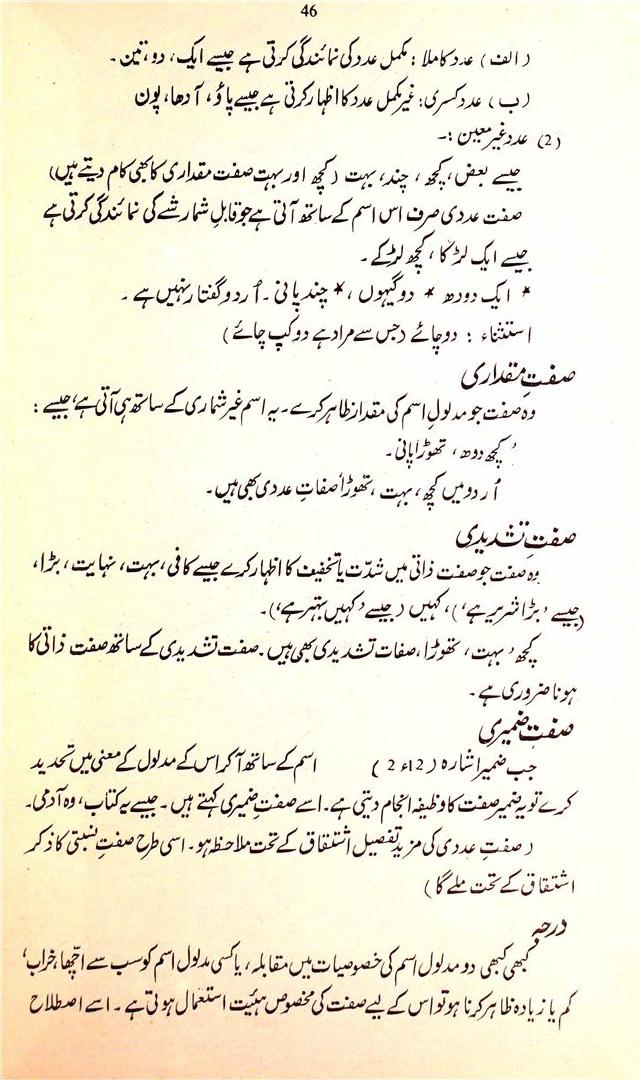 46
(الف) عدد کاملا : مکمل عدد کی نمائندگی کرتی ہے جیسے ایک، دو، تین۔
(ب) عدد کسری: غیر مکمل عدد کا اظہار کرتی ہے جیسے پاؤ، آدھا، پون
(2) عدد غیر معین :۔
جیسے بعض، کچھ، چند، بہت (کچھ اور بہت صفت مقداری کا بھی کام دیتے ہیں)
صفت عددی صرف اس اسم کے ساتھ آتی ہے جو قابلِ شمار شے کی نمائندگی کرتی ہے
جیسے ایک لڑکا، کچھ لڑکے۔
* ایک دودھ * دو گیہوں، * چند پانی ۔ اُردو گفتار نہیں ہے۔
استثناء : دو چائے (جس سے مراد ہے دو کپ چائے)
صفتِ مقداری
وہ صفت جو مدلولِ اسم کی مقدار ظاہر کرے۔ یہ اسم غیر شماری کے ساتھ ہی آتی ہے، جیسے :
کچھ دودھ، تھوڑا پانی۔
اُردو میں کچھ، بہت، تھوڑا صفاتِ عددی بھی ہیں۔
صفتِ تشدیدی
وہ صفت جو صفت ذاتی میں شدّت یا تخفیف کا اظہار کرے جیسے کافی، بہت، نہایت، بڑا،
(جیسے 'بڑا شریر ہے')، کہیں (جیسے 'کہیں بہتر ہے')۔
کچھ، بہت، تھوڑا، صفات تشدیدی بھی ہیں۔ صفت تشدیدی کے ساتھ صفت ذاتی کا
ہونا ضروری ہے۔
صفتِ ضمیری
جب ضمیر اشارہ (2ء12) اسم کے ساتھ آکر اس کے مدلول کے معنی میں تحدید
کرے تو یہ ضمیر صفت کا وظیفہ انجام دیتی ہے۔ اسے صفتِ ضمیری کہتے ہیں۔ جیسے یہ کتاب، وہ آدمی۔
(صفتِ عددی کی مزید تفصیل اشتقاق کے تحت ملاحظہ ہو۔ اسی طرح صفتِ نسبتی کا ذکر
اشتقاق کے تحت ملے گا)
درجہ
کبھی کبھی دو مدلول اسم کی خصوصیات میں مقابلہ، یا کسی مدلول اسم کو سب سے اچھا، خراب،
کم یا زیادہ ظاہر کرنا ہو تو اس کے لیے صفت کی مخصوص ہیئت استعمال ہوتی ہے۔ اسے اصطلاح